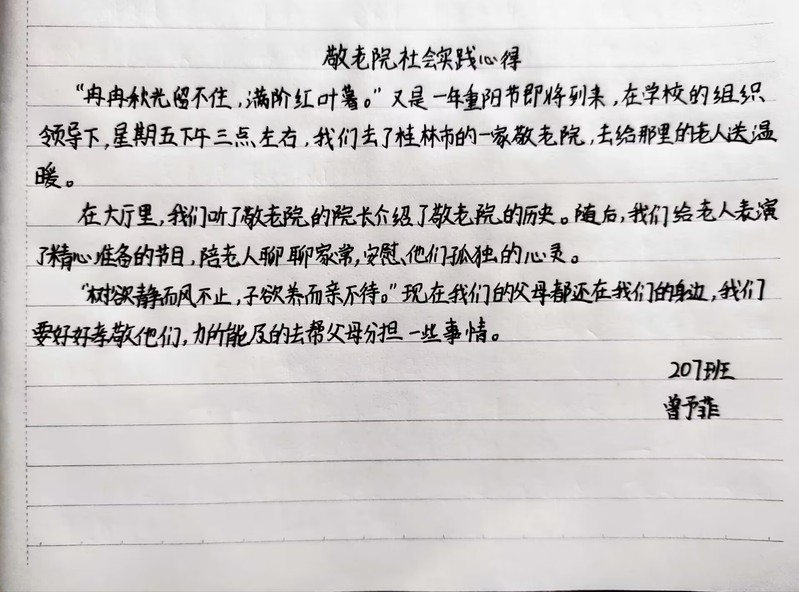 敬老院社会实践心得
“冉冉秋光留不住，满阶红叶暮。”又是一年重阳节即将到来，在学校的组织
领导下，星期五下午三点左右，我们去了桂林市的一家敬老院，去给那里的老人送温
暖。
在大厅里，我们听了敬老院的院长介绍了敬老院的历史。随后，我们给老人表演
了精心准备的节目，陪老人聊聊家常，安慰他们孤独的心灵。
“树欲静而风不止，子欲养而亲不待。”现在我们的父母都还在我们的身边，我们
要好好孝敬他们，力所能及的去帮父母分担一些事情。
207班
曾予菲